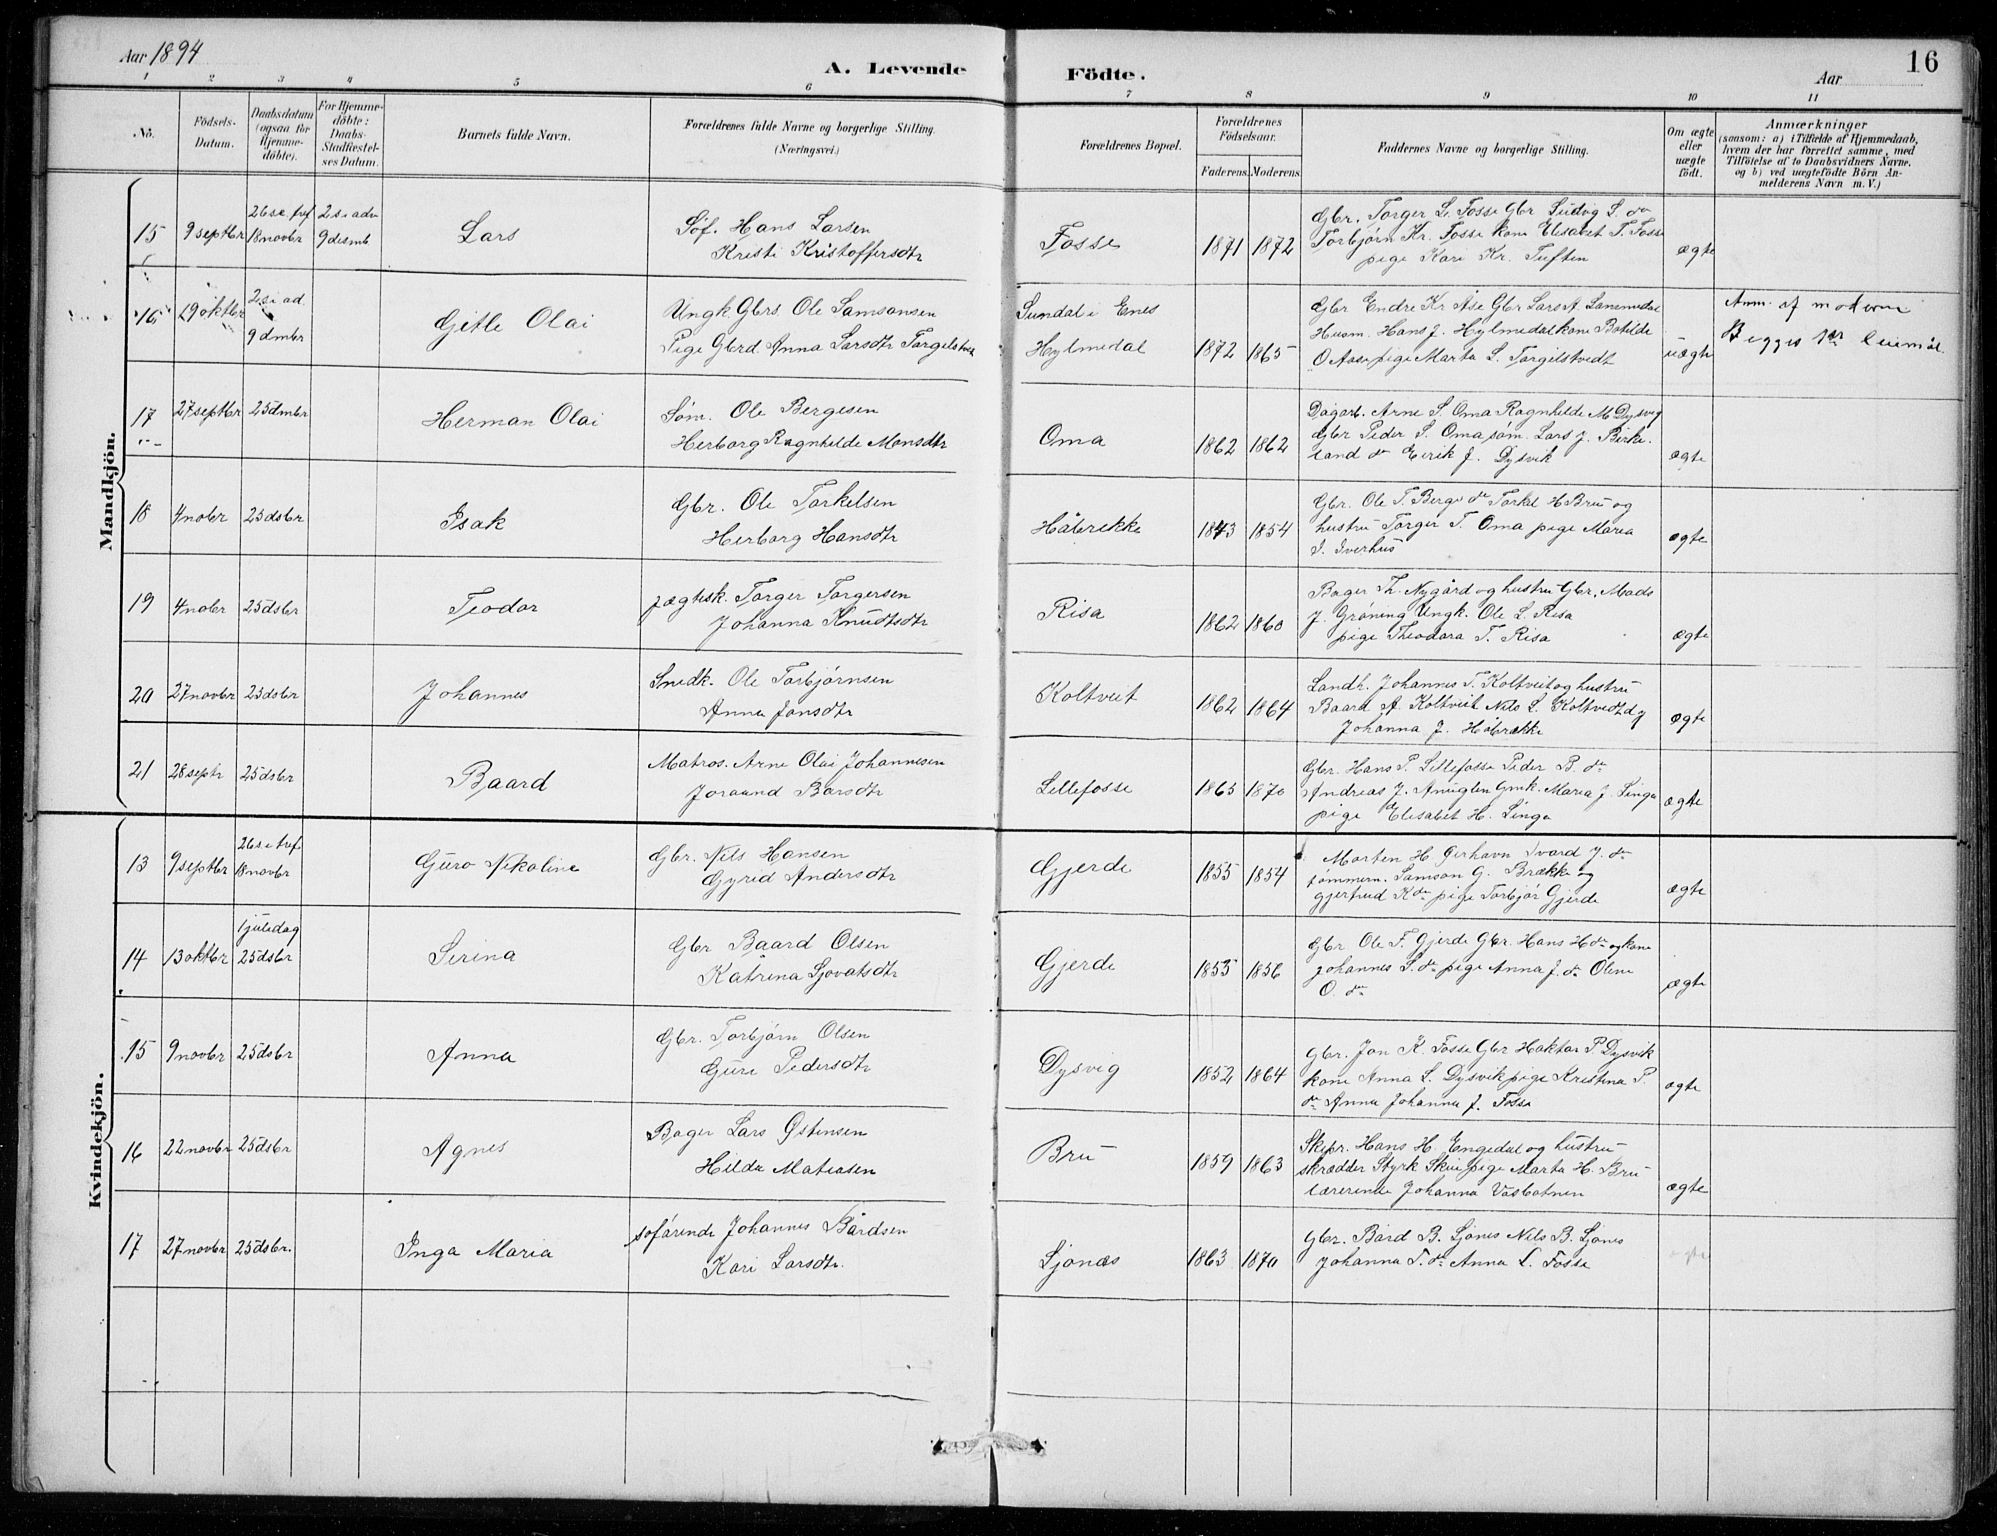 Aar 1894
A. Levende Födte.
Aar
16
1 2 3 4 5 6 7 8 9 10 11
No.
Födsels-Datum.
Daabsdatum (ogsaa for Hjemme-döbte).
For Hjemme-döbte: Daabs-Stadfæstel-ses Datum.
Barnets fulde Navn.
Forældrenes fulde Navne og borgerlige Stilling. (Næringsvei.)
Forældrenes Bopæl.
Forældrenes Födselsaar.
Faderens. Moderens.
Faddernes Navne og borgerlige Stilling.
Om ægte eller uægte födt.
Anmærkninger
(saasom: a) i Tilfælde af Hjemmedaab, hvem der har forrettet samme, med Tilföielse af to Daabsvidners Navne, og b) ved uægtefödte Börn An-melderens Navn m. V.)
Mandkjön.
15 9 septbr 26 s e tref 18 novbr 2 s i adv 9 desmb Lars
Søf. Hans Larsen
Kristi Kristoffersdtr
Fosse 1871 1872
Gbr. Torger L. Fosse Gbr Ludvg L. do
Torbjørn Kr. Fosse kone Elisabet T. Fosse
pige Kari Kr. Tuften
ægte
16 29 oktbr 2 s i ad. 9 dmbr Gitle Olai
Ungk. Gbrs. Ole Samsonsen
Pige Gbrd. Anna Larsdtr Torgilstvedt
Sundal i Enes
Hylmedal 1872 1865
Gbr Endre Kr Åse Gbr Lars A.
Husm. Hans J. Hylmedal kone Botilde
O Aase pige Marta L. Torgilstvedt
uægte
Anm. af moderen
Begges 1ste leiermål.
17 27 septbr 25 dmbr Herman Olai
Søm. Ole Bergesen
Herborg Ragnhilde Monsdtr
Oma 1862 1862
Dagarb. Arne S. Oma Ragnhilde M Dysvig
Gbr Peder S. Oma søm. Lars J. Birke-
land do Eirik J. Dysvik
ægte
18 4 nobr 25 dsbr Isak
Gbr. Ole Torkelsen
Herborg Hansdtr
Håbrekke 1843 1854
Gbr. Ole T. Berge do Torkel H Bru og
hustru Torger T. Oma pige Maria
I. Iverhus
ægte
19 4 nobr 25 dsbr Teodor
jægtesk. Torger Torgersen
Johanna Knudtsdtr
Risa 1862 1860
Bager Th. Nygård og hustru Gbr. Mads
J. Grøning Ungk. Ole L. Risa
pige Theodora T. Risa
ægte
20 27 novbr 25 dsbr Johannes
Snedk. Ole Torbjørnsen
Anna Jonsdtr
Koltveit 1862 1864
Landh. Johannes T. Koltveit og hustru
Baard A. Koltveit Nils L. Koltvedt og
Johanna J. Håbrække
ægte
21 28 septr 25 dsbr Baard
Matros. Arne Olai Johannesen
Joraand Barsdtr
Lillefosse 1865 1870
Gbr. Hans P. Lillefosse Peder B. do
Andreas J. Anuglen Gmk. Maria J. Linga
pige Elisabet H. Linga
ægte
Kvindekjön.
13 9 septbr 26 s e tref 18 novbr Guro Nikoline
Gbr. Nils Hansen
Gyrid Andersdtr
Gjerde 1855 1854
Morten H. Gerhavn Ivard J. do
tømmerm. Samson G. Brække og
gjertrud K do pige Torbjør Gjerde
ægte
14 13 oktbr 1 juledag 25 dsbr Serina
Gbr Baard Olsen
Katrina Sjovatsdtr
Gjerde 1855 1856
Gbr Ole F. Gjerde Gbr. Hans H do og kone
Johannes S. do pige Anna J. do Oline
O. do
ægte
15 9 novbr 25 dsbr Anna
Gbr. Torbjørn Olsen
Guri Pedersdtr
Dysvig 1852 1864
Gbr. Jon K. Fosse Gbr Haktor P. Dysvik
kone Anna L. Dysvik pige Kristina P.
do Anna Johanna J. Fosse
ægte
16 22 novbr 25 dsbr Agnes
Bager Lars Østensen
Hilda Matiasen
Bru 1859 1863
Skipr. Hans H. Engedal og hustru
skrædder Styrk Skiu pige Marta H. Bru
lærerinde Johanna Vasbotnen
ægte
17 27 novbr 25 dsbr. Inga Maria
sofarende Johannes Bårdsen
Kari Larsdtr.
Sjonæs 1863 1870
Gbr. Bård B. Sjones Nils B. Sjones
Johanna T. do Anna L. Fosse
ægte